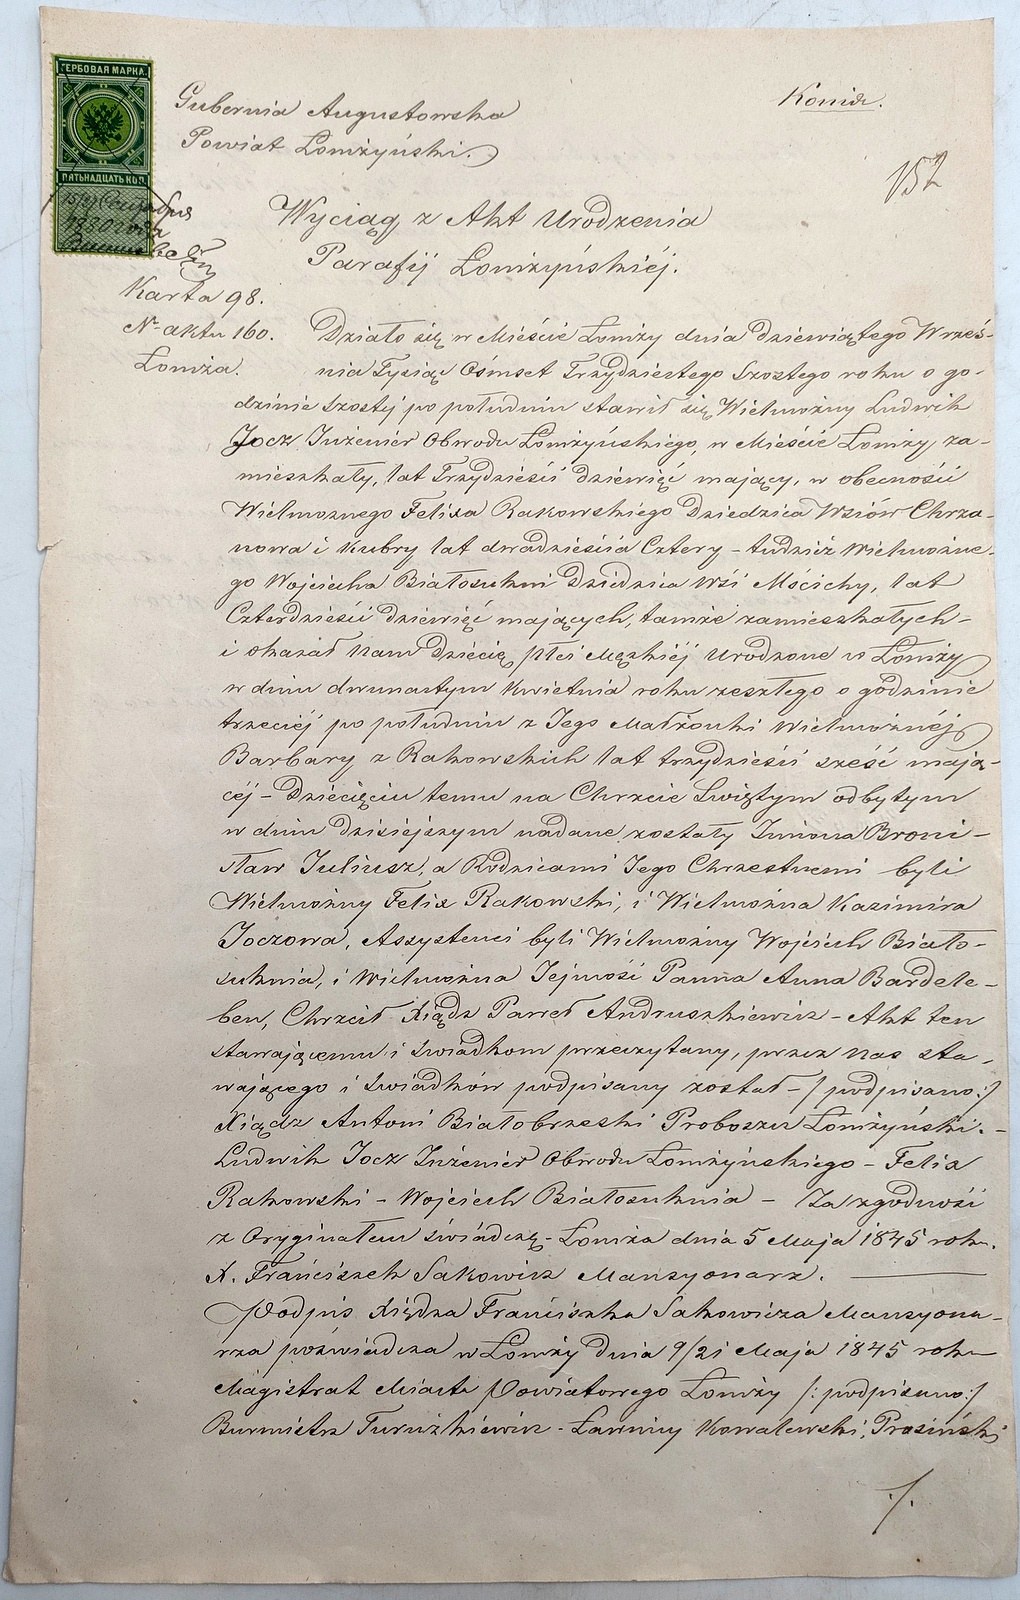 ГЕРБОВАЯ МАРКА.
ПЯТЬНАДЦАТЬ КОП.
1880 года
Kopia.
152
Gubernia Augustowska
Powiat Łomżyński.
Wyciąg z Akt Urodzenia
Parafij Łomżyńskiéj.
Karta 98.
N. aktu 160.
Łomża.
Działo się w Mieście Łomży dnia dziewiątego Wrześ-
nia Tysiąc Ośmset Trzydziestego Szostego roku o go-
dzinie szostej po południu stawił się Wielmożny Ludwik
Jocz Inżenier Obwodu Łomżyńskiego, w Mieście Łomży za-
mieszkały, lat Trzydzieści dziewięć mający, w obecności
Wielmożnego Felixa Rakowskiego Dziedzica Wsiów Chrza-
nowa i Kubry lat dwadzieścia Cztery - tudzież Wielmożne-
go Wojciecha Białosukni Dziedzica Wsi Mścichy, lat
Czterdzieści dziewięć mających, tamże zamieszkałych -
i okazał nam Dziecię płci Męzkiéj Urodzone w Łomży
w dniu dwunastym Kwietnia roku zeszłego o godzinie
trzeciéj po południu z Jego Małżonki Wielmożnéj
Barbary z Rakowskich lat trzydzieści sześć mają-
céj - Dziecięciu temu na Chrzcie Świętym odbytym
w dniu dzisiejszym nadane zostały Imiona Broni-
sław Juliusz, a Rodzicami Jego Chrzestnemi byli
Wielmożny Felix Rakowski, i Wielmożna Kazimira
Joczowa, Assystenci byli Wielmożny Wojciech Biało-
suknia, i Wielmożna Jejmość Panna Anna Bardele-
ben, Chrzcił Xiądz Paweł Andruszkiewicz - Akt ten
stawającemu i świadkom przeczytany, przez nas sta-
wającego i świadków podpisany został - /podpisano:/
Xiądz Antoni Białobrzeski Proboszcz Łomżyński. -
Ludwik Jocz Inżenier Obwodu Łomżyńskiego - Felix
Rakowski - Wojciech Białosuknia - Za zgodność
z Oryginałem świadczę - Łomża dnia 5 Maja 1845 roku.
X. Franciszek Sakowicz Mansyonarz.
Podpis Xiędza Franciszka Sakowicza Mansyona-
rza poświadcza w Łomży dnia 9/21 Maja 1845 roku
Magistrat Miasta Powiatowego Łomży /:podpisano:/
Burmistrz - Ławnicy Kowalewski, Prosiński
./.